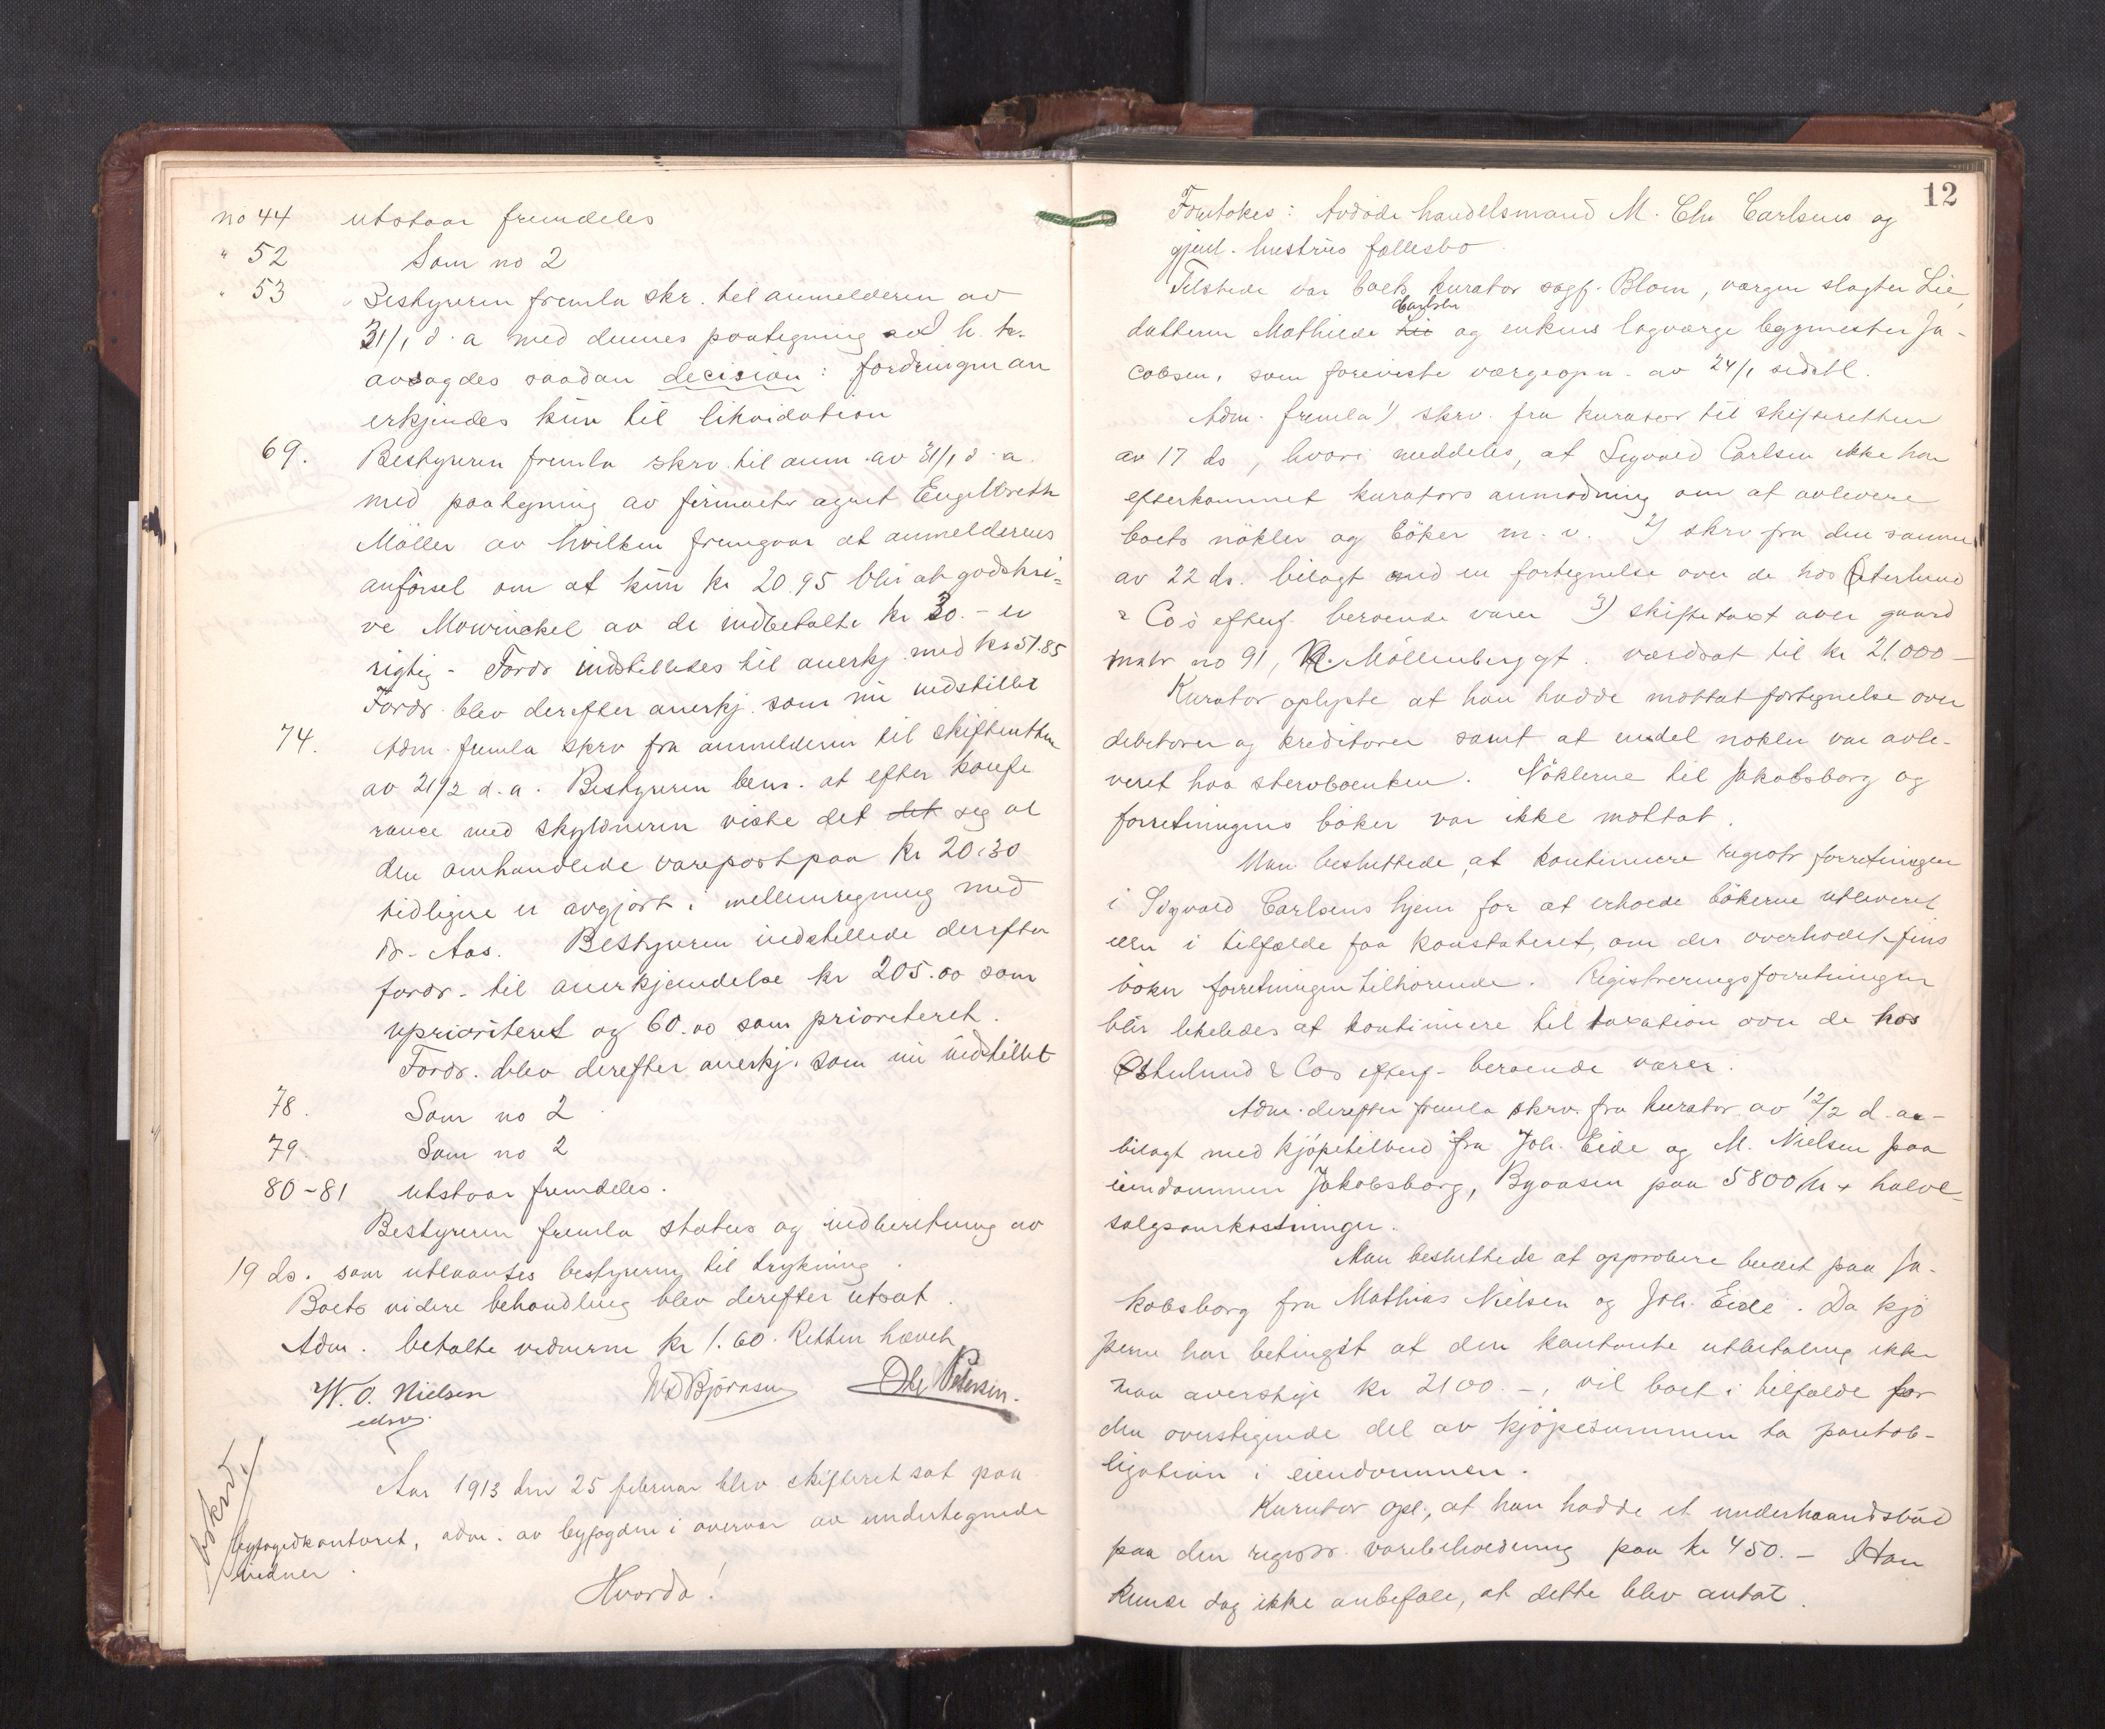 no 44 utstaar fremdeles
" 52 Som no 2
" 53 Bestyreren fremla skr. til anmelderen av
31/1 d.a. med dennes paategning
avsagdes saadan decision: fordringen an
erkjendes kun til likvidation
69. Bestyreren fremla skrv. til anm. av 31/1 d.a.
med paategning av firmaets agent Engelbreth
Möller av hvilken fremgaar at anmelderens
anförsel om at kun kr 20.95 blir at godskri=
ve Mowinckel av de indbetalte kr 30.- er
rigtig - Fordr indstilledes til anerkj. med kr 51.85
Fordr. blev derefter anerkj. som nu indstillet
74. Adm. fremla skrv fra anmelderen til skifteretten
av 21/2 d.a. Bestyreren bem. at efter konfe
rance med skyldneren viste det det seg at
den omhandlede varepost paa kr 20.30
tidligere er avgjort i mellemregning med
dr. Aas. Bestyreren indstillede derefter
fordr. til anerkjendelse kr 205.00 som
uprioriteret og 60.00 som prioriteret.
Fordr. blev derefter anerkj. som nu indstillet
78. Som no 2
79. Som no 2
80-81 utstaar fremdeles.
Bestyreren fremla status og indberetning av
19 ds. som utlaantes bestyreren til trykning.
Boets videre behandling blev derefter utsat.
Adm. betalte vidnerne kr 1.60. Retten hævet
W. O. Nielsen Björnsen Ole Petersen.
edsv.
Aar 1913 den 25 februar blev skifteret sat paa
byfogedkontoret, adm. av byfogden i overvær av undertegnede
vidner.
Hvorda!
utskrt.
12
Foretokes: Avdöde handelsmand M. Chr Carlsens og
gjenl. hustrus fællesbo.
Tilstede var boets kurator sagf. Blom, værgen slagter Lie,
datteren Mathilde Lie Carlsen og enkens lagværge bygmester Ja-
cobsen, som foreviste værgeopn. av 24/1 sidstl.
Adm. fremla 1) skrv. fra kurator til skifteretten
av 17 ds, hvori meddeles, at Sigvald Carlsen ikke har
efterkommet kurators anmodning om at avlevere
boets nökler og böker m. v. 2) skrv fra den samme
av 22 ds. bilagt med en fortegnelse over de hos Østerlund
& Co's efterf. beroende varer 3) skiftetaxt over gaard
matr no 91, Möllenberggt. værdsat til kr 21.000 -
Kurator oplyste at han hadde mottat fortegnelse over
debitorer og kreditorer samt at endel nökler var avle-
veret hos stervboenken. Nöklerne til Jakobsborg og
forretningens böker var ikke mottat.
Man besluttede, at kontinuere registr forretningen
i Sigvald Carlsens hjem for at erholde bökerne utleveret
eller i tilfælde faa konstateret, om der overhodet fins
böker forretningen tilhörende. Registreringsforretningen
blir likeledes at kontinuere til taxation over de hos
Østerlund & Cos efterf. beroende varer.
Adm. derefter fremla skrv. fra kurator av 12/2 d.a. -
bilagt med kjöpetilbud fra Joh. Eide og M. Nielsen paa
eiendommen Jakobsborg, Byaasen paa 5800 kr + halve
salgsomkostninger.
Man besluttede at approbere budet paa Ja-
kobsborg fra Mathias Nielsen og Joh. Eide. Da kjö
perne har betinget at den kontante utbetaling ikke
maa overstige kr 2100.-, vil boet i tilfælde for
den overstigende del av kjöpesummen ta pantob-
ligation i eiendommen.
Kurator opl., at han hadde et underhaandsbud
paa den registr. varebeholdning paa kr 450.- Han
kunde dog ikke anbefale, at dette blev antat.